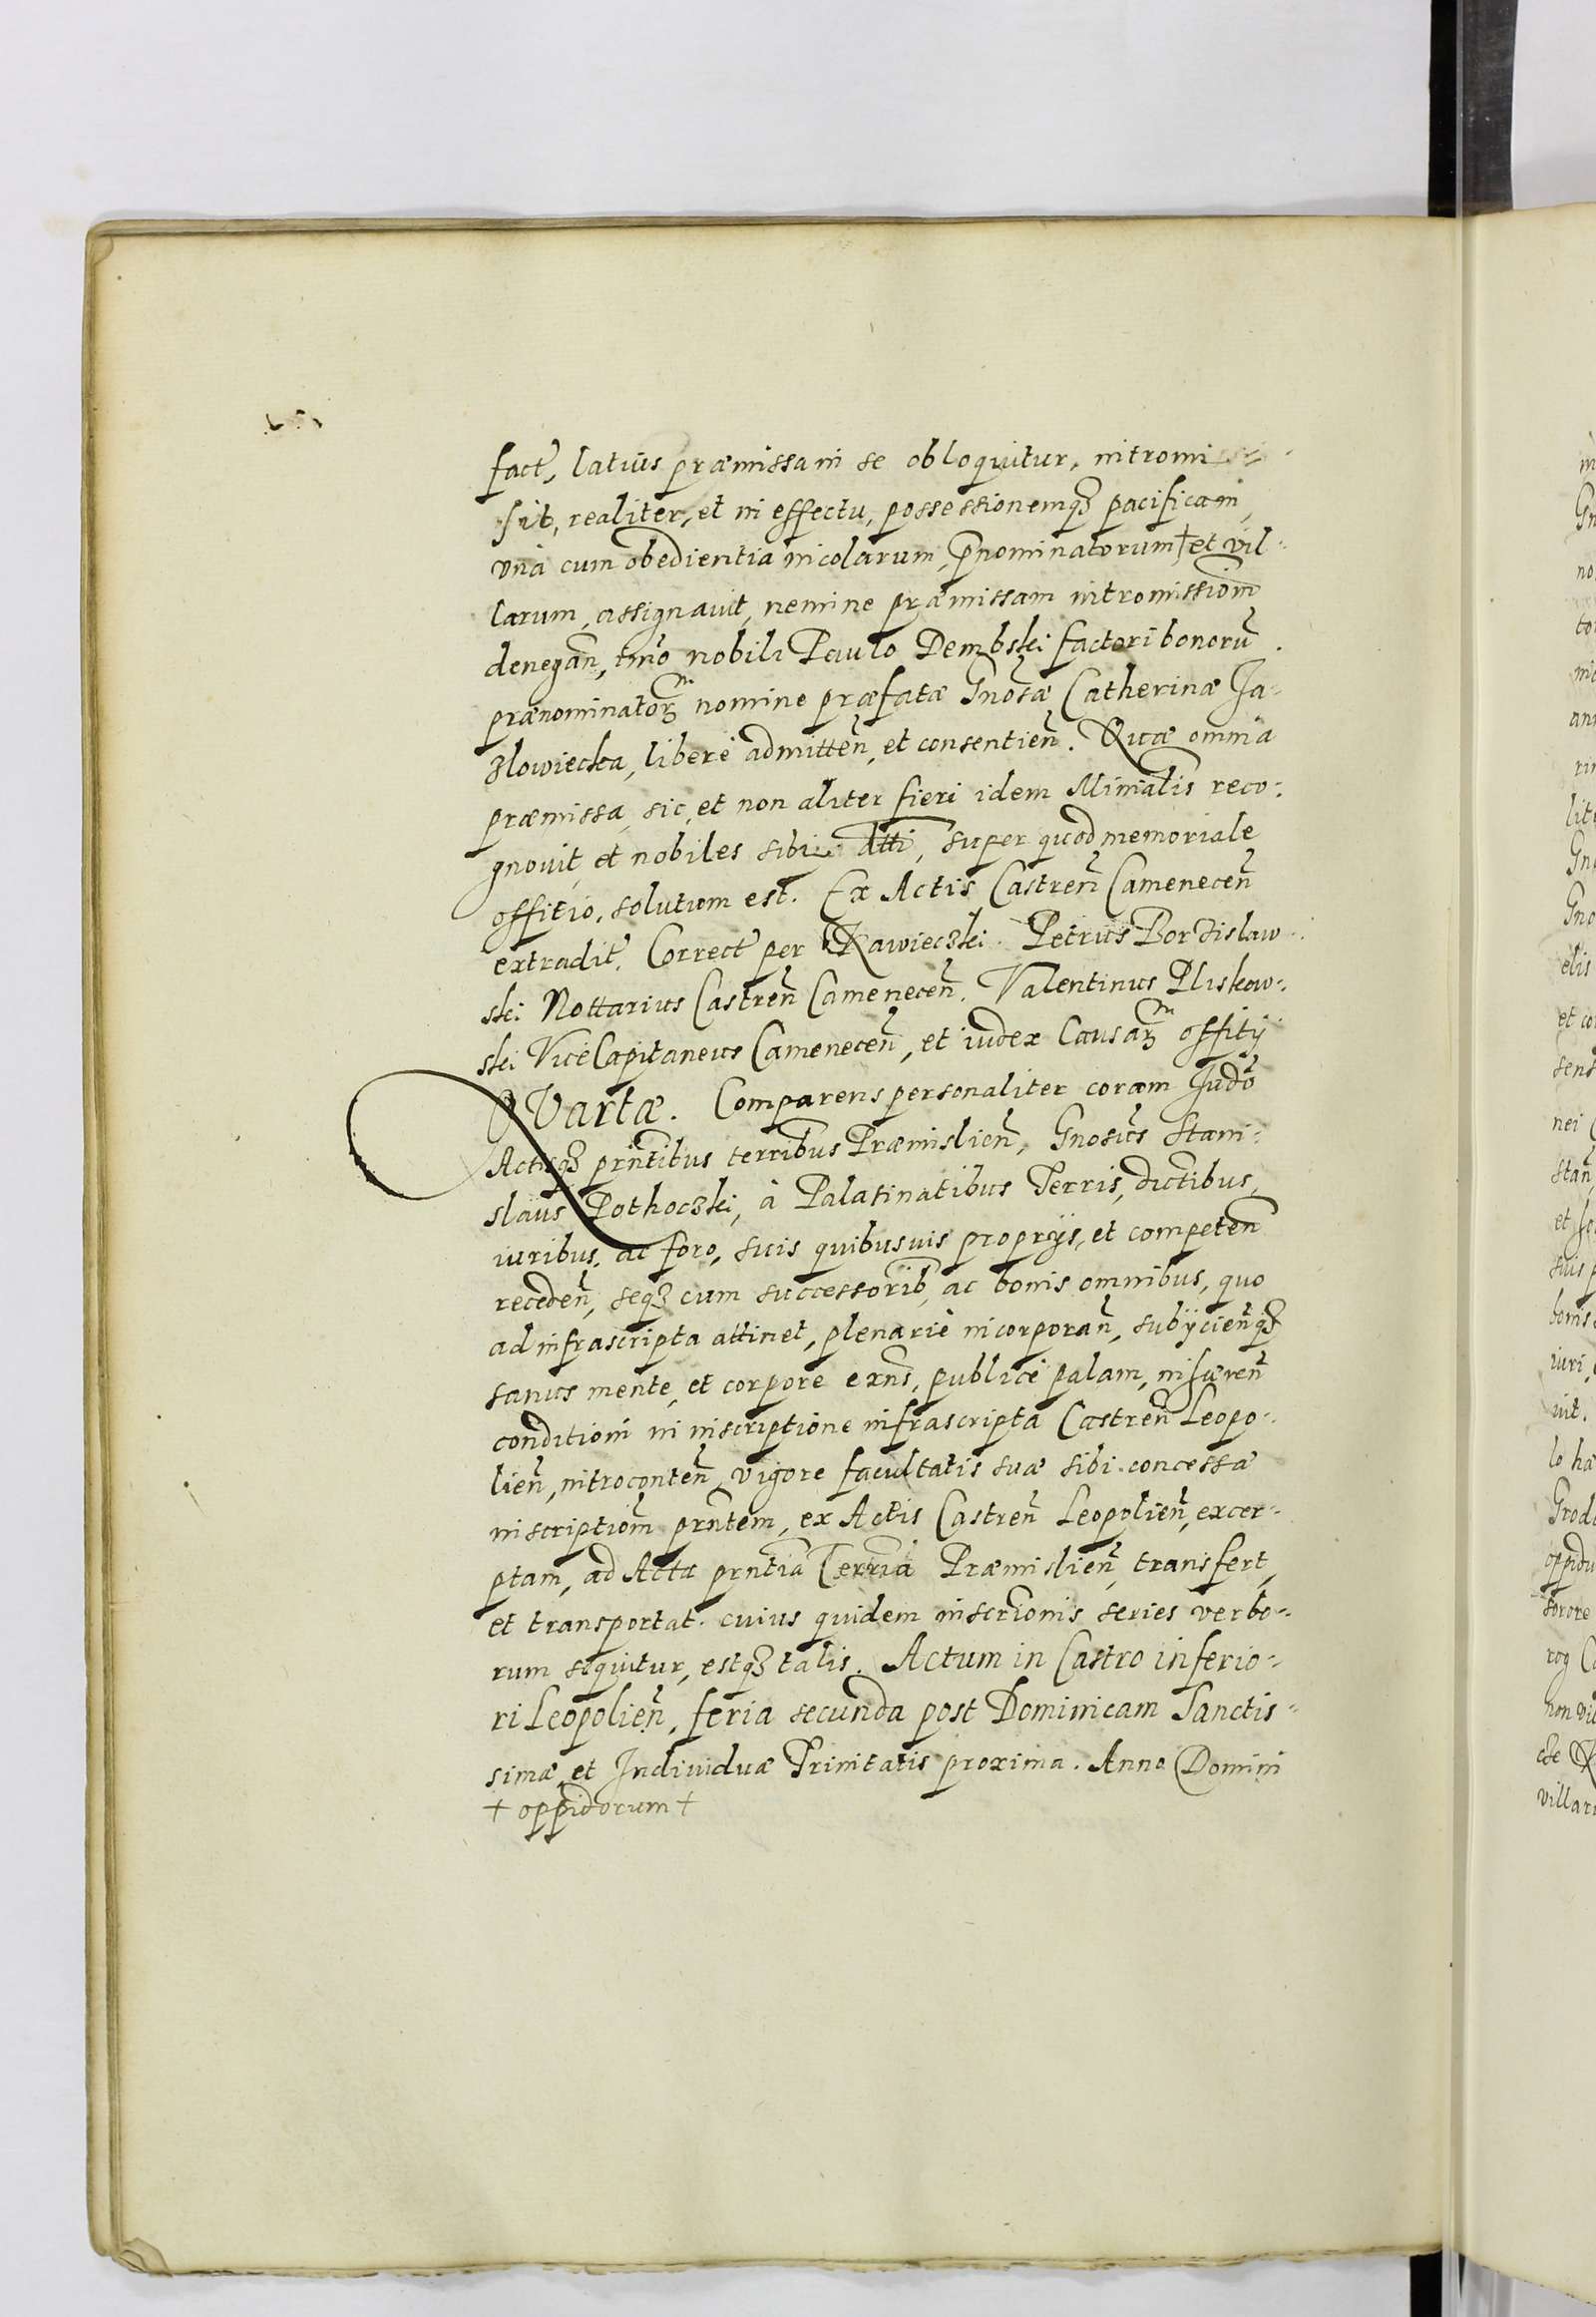 fact̃, latius præmissam in se obloquitur, intromi-
sit, realiter, et in effectu, possessionemqȝ pacificam,
vnà cum obedientia incolarum, p̃nominatorum † et vil-
larum, assignauit, nemine præmissam intromissiom̃
denegañ, imò nobili Paulo Dembski factori bonorũ
prænominatorȝ nomine præfatæ Gnosæ Catherinæ Ja-
zlowiecka, liberè admitteñ, et consentieñ. Quæ omnia
præmissa, sic, et non aliter fieri idem Minialis reco-
gnouit, et nobiles sibi atti, super quod memoriale
offitio, solutum est. Ex Actis Castreñ Cameneceñ
extradit̃. Correct̃ per Rawieczki. Petrus Borzislaw-
ski Nottarius Castreñ Cameneceñ. Valentinus Pliskow-
ski ViceCapitaneus Cameneceñ, et iudex Causarȝ offitij
QVartæ. Comparens personaliter coram Judõ
Actisqȝ prñtibus terribus Præmislieñ, Gnosus Stani-
slaus Pothoczki, à Palatinatibus Terris, dictibus,
iuribus, ac foro, suis quibusuis proprijs, et competeñ
recedeñ, seqȝ cum successorib, ac bonis omnibus, quo
ad infrascripta attinet, plenariè incorporañ, subijcieñqȝ
sanus mente, et corpore exñs, publicè palam, inhæreñ
conditioni in inscriptione infrascripta Castreñ Leopo-
lieñ, introconteñ, vigore facultatis suæ sibi concessæ
inscriptiom̃ prñtem, ex Actis Castreñ Leopolieñ, excer-
ptam, ad Acta prñtia Terria Præmislieñ, transfert,
et transportat. cuius quidem inscrionis series verbo-
rum sequitur, estqȝ talis. Actum in Castro inferio-
ri Leopolieñ, feria secunda post Dominicam Sanctis-
simæ, et Indiuiduæ Trinitatis proxima. Anno Domini
† oppidorum †